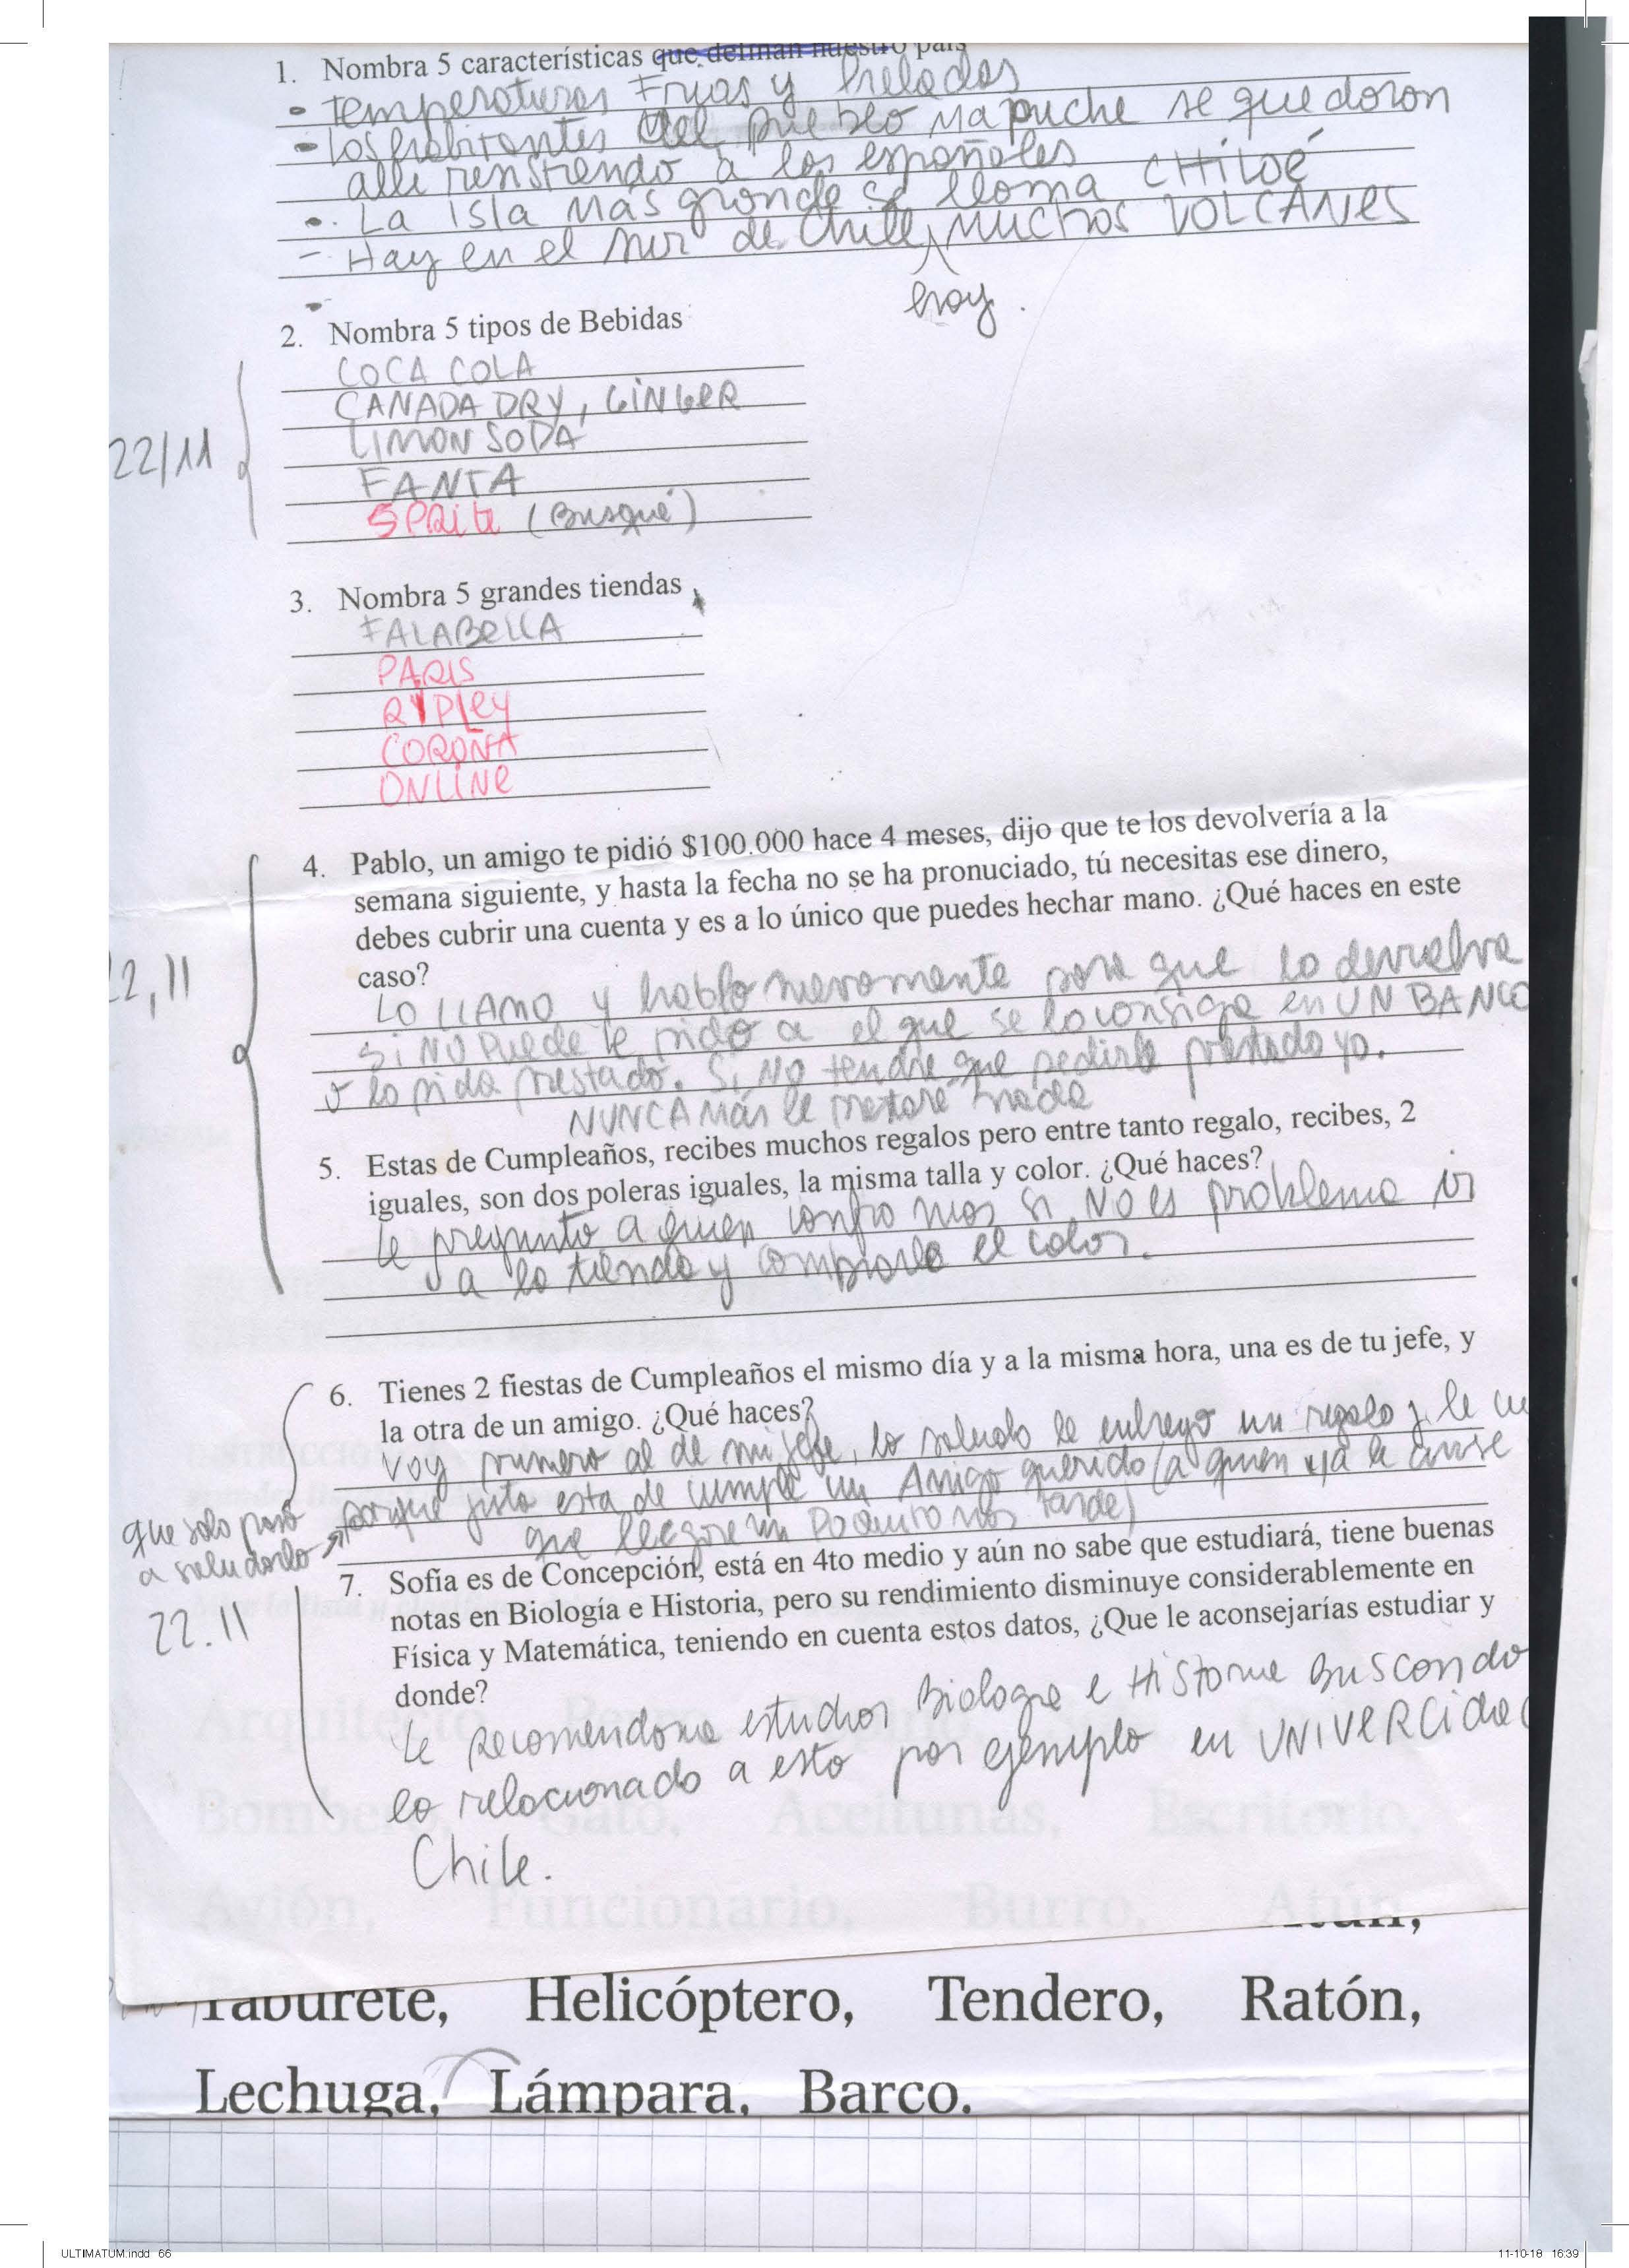 1. Nombra 5 características que definan nuestro país
- temperaturas Frias y heladas
- Los habitantes del pueblo Mapuche se quedaron
alli resistiendo a los españoles
- La isla más grande se llama CHILOÉ
- Hay en el sur de Chile, MUCHOS VOLCANES
hay.
2. Nombra 5 tipos de Bebidas
COCA COLA
CANADA DRY, GINGER
LIMON SODA
FANTA
SPRite (Busqué)
22/11
3. Nombra 5 grandes tiendas
FALABELLA
PARIS
RIPLey
CORONA
ONLINe
4. Pablo, un amigo te pidió $100.000 hace 4 meses, dijo que te los devolvería a la
semana siguiente, y hasta la fecha no se ha pronuciado, tú necesitas ese dinero,
debes cubrir una cuenta y es a lo único que puedes hechar mano. ¿Qué haces en este
caso?
2,11
LO LLAMO y hablo nuevamente para que lo devuelva
Si NO Puede le pido a el que se lo consiga en UN BANCO
o lo pida prestado. Si NO tendre que pedirle prestado yo.
NUNCA Más le prestaré nada
5. Estas de Cumpleaños, recibes muchos regalos pero entre tanto regalo, recibes, 2
iguales, son dos poleras iguales, la misma talla y color. ¿Qué haces?
le pregunto a quien confio mas si NO es problema ir
a la tienda y cambiarle el color.
6. Tienes 2 fiestas de Cumpleaños el mismo día y a la misma hora, una es de tu jefe, y
la otra de un amigo. ¿Qué haces?
Voy primero al de mi jefe, lo saludo le entrego un regalo y le
que solo paso
a saludarlo
porque justo esta de cumple un Amigo querido (a quien ya le avise
que llegare un poquito mas tarde)
22.11
7. Sofía es de Concepción, está en 4to medio y aún no sabe que estudiará, tiene buenas
notas en Biología e Historia, pero su rendimiento disminuye considerablemente en
Física y Matemática, teniendo en cuenta estos datos, ¿Que le aconsejarías estudiar y
donde?
Le Recomendaria estudiar Biologia e Historia Buscando
lo relacionado a esto por ejemplo en UNIVERCidad
Chile.
Arquitecto,
Bombero, Gato, Aceitunas, Escritorio,
Avión, Funcionario, Burro, Atún,
Taburete, Helicóptero, Tendero, Ratón,
Lechuga, Lámpara, Barco.
ULTIMATUM.indd 66
11-10-18 16:39